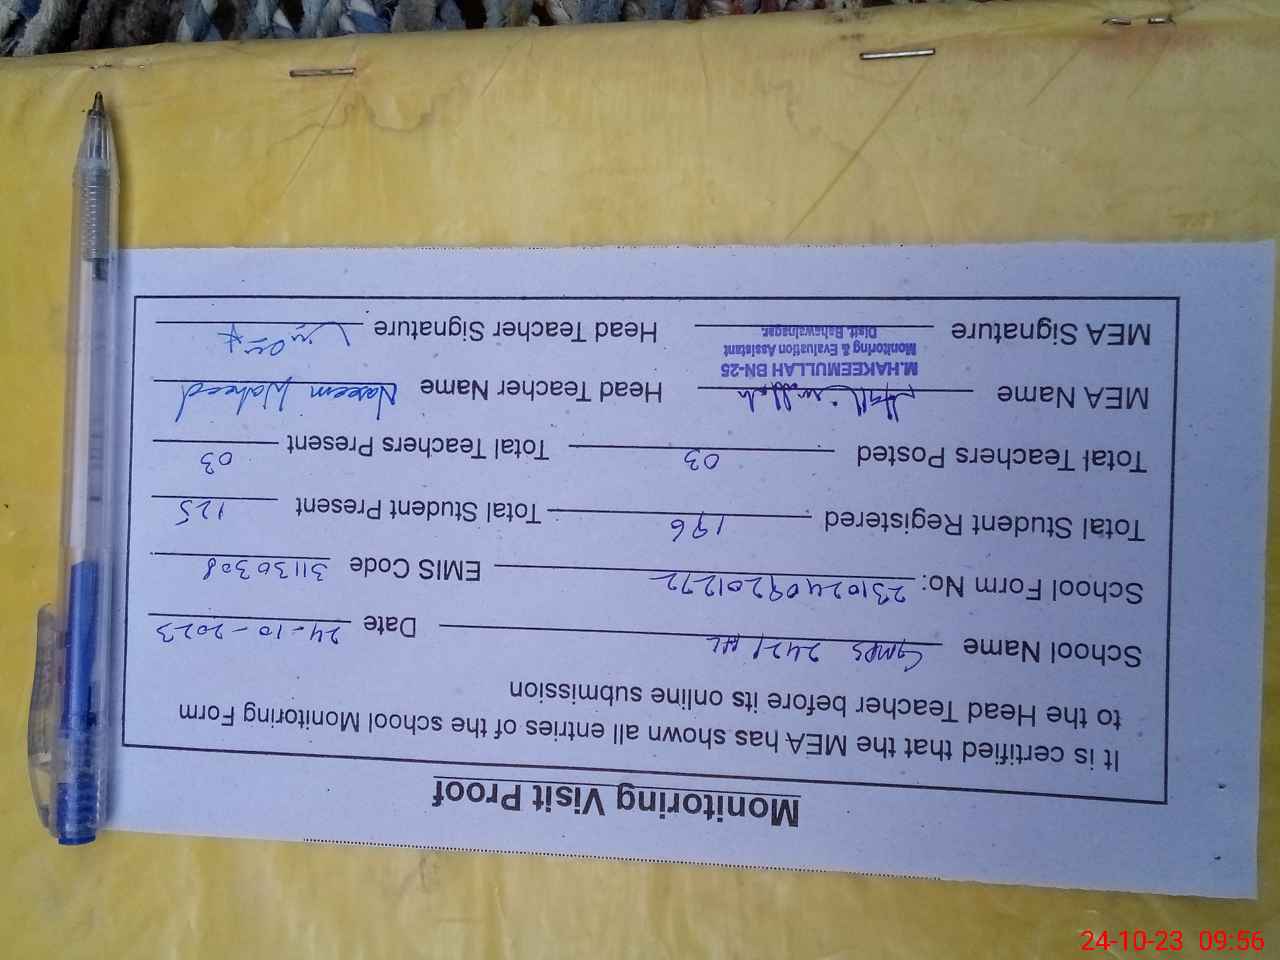 Monitoring Visit Proof
It is certified that the MEA has shown all entries of the school Monitoring Form
to the Head Teacher before its online submission
School Name GMPS 242/ Date 24-10-2023
School Form No: 23102409201272 EMIS Code 31130308
Total Student Registered 196 Total Student Present 125
Total Teachers Posted 03 Total Teachers Present 03
MEA Name Head Teacher Name Naseem Waheed
M.HAKEEMULLAH BN-25
Monitoring & Evaluation Assistant
Distt. Bahawalnagar.
MEA Signature Head Teacher Signature
24-10-23 09:56